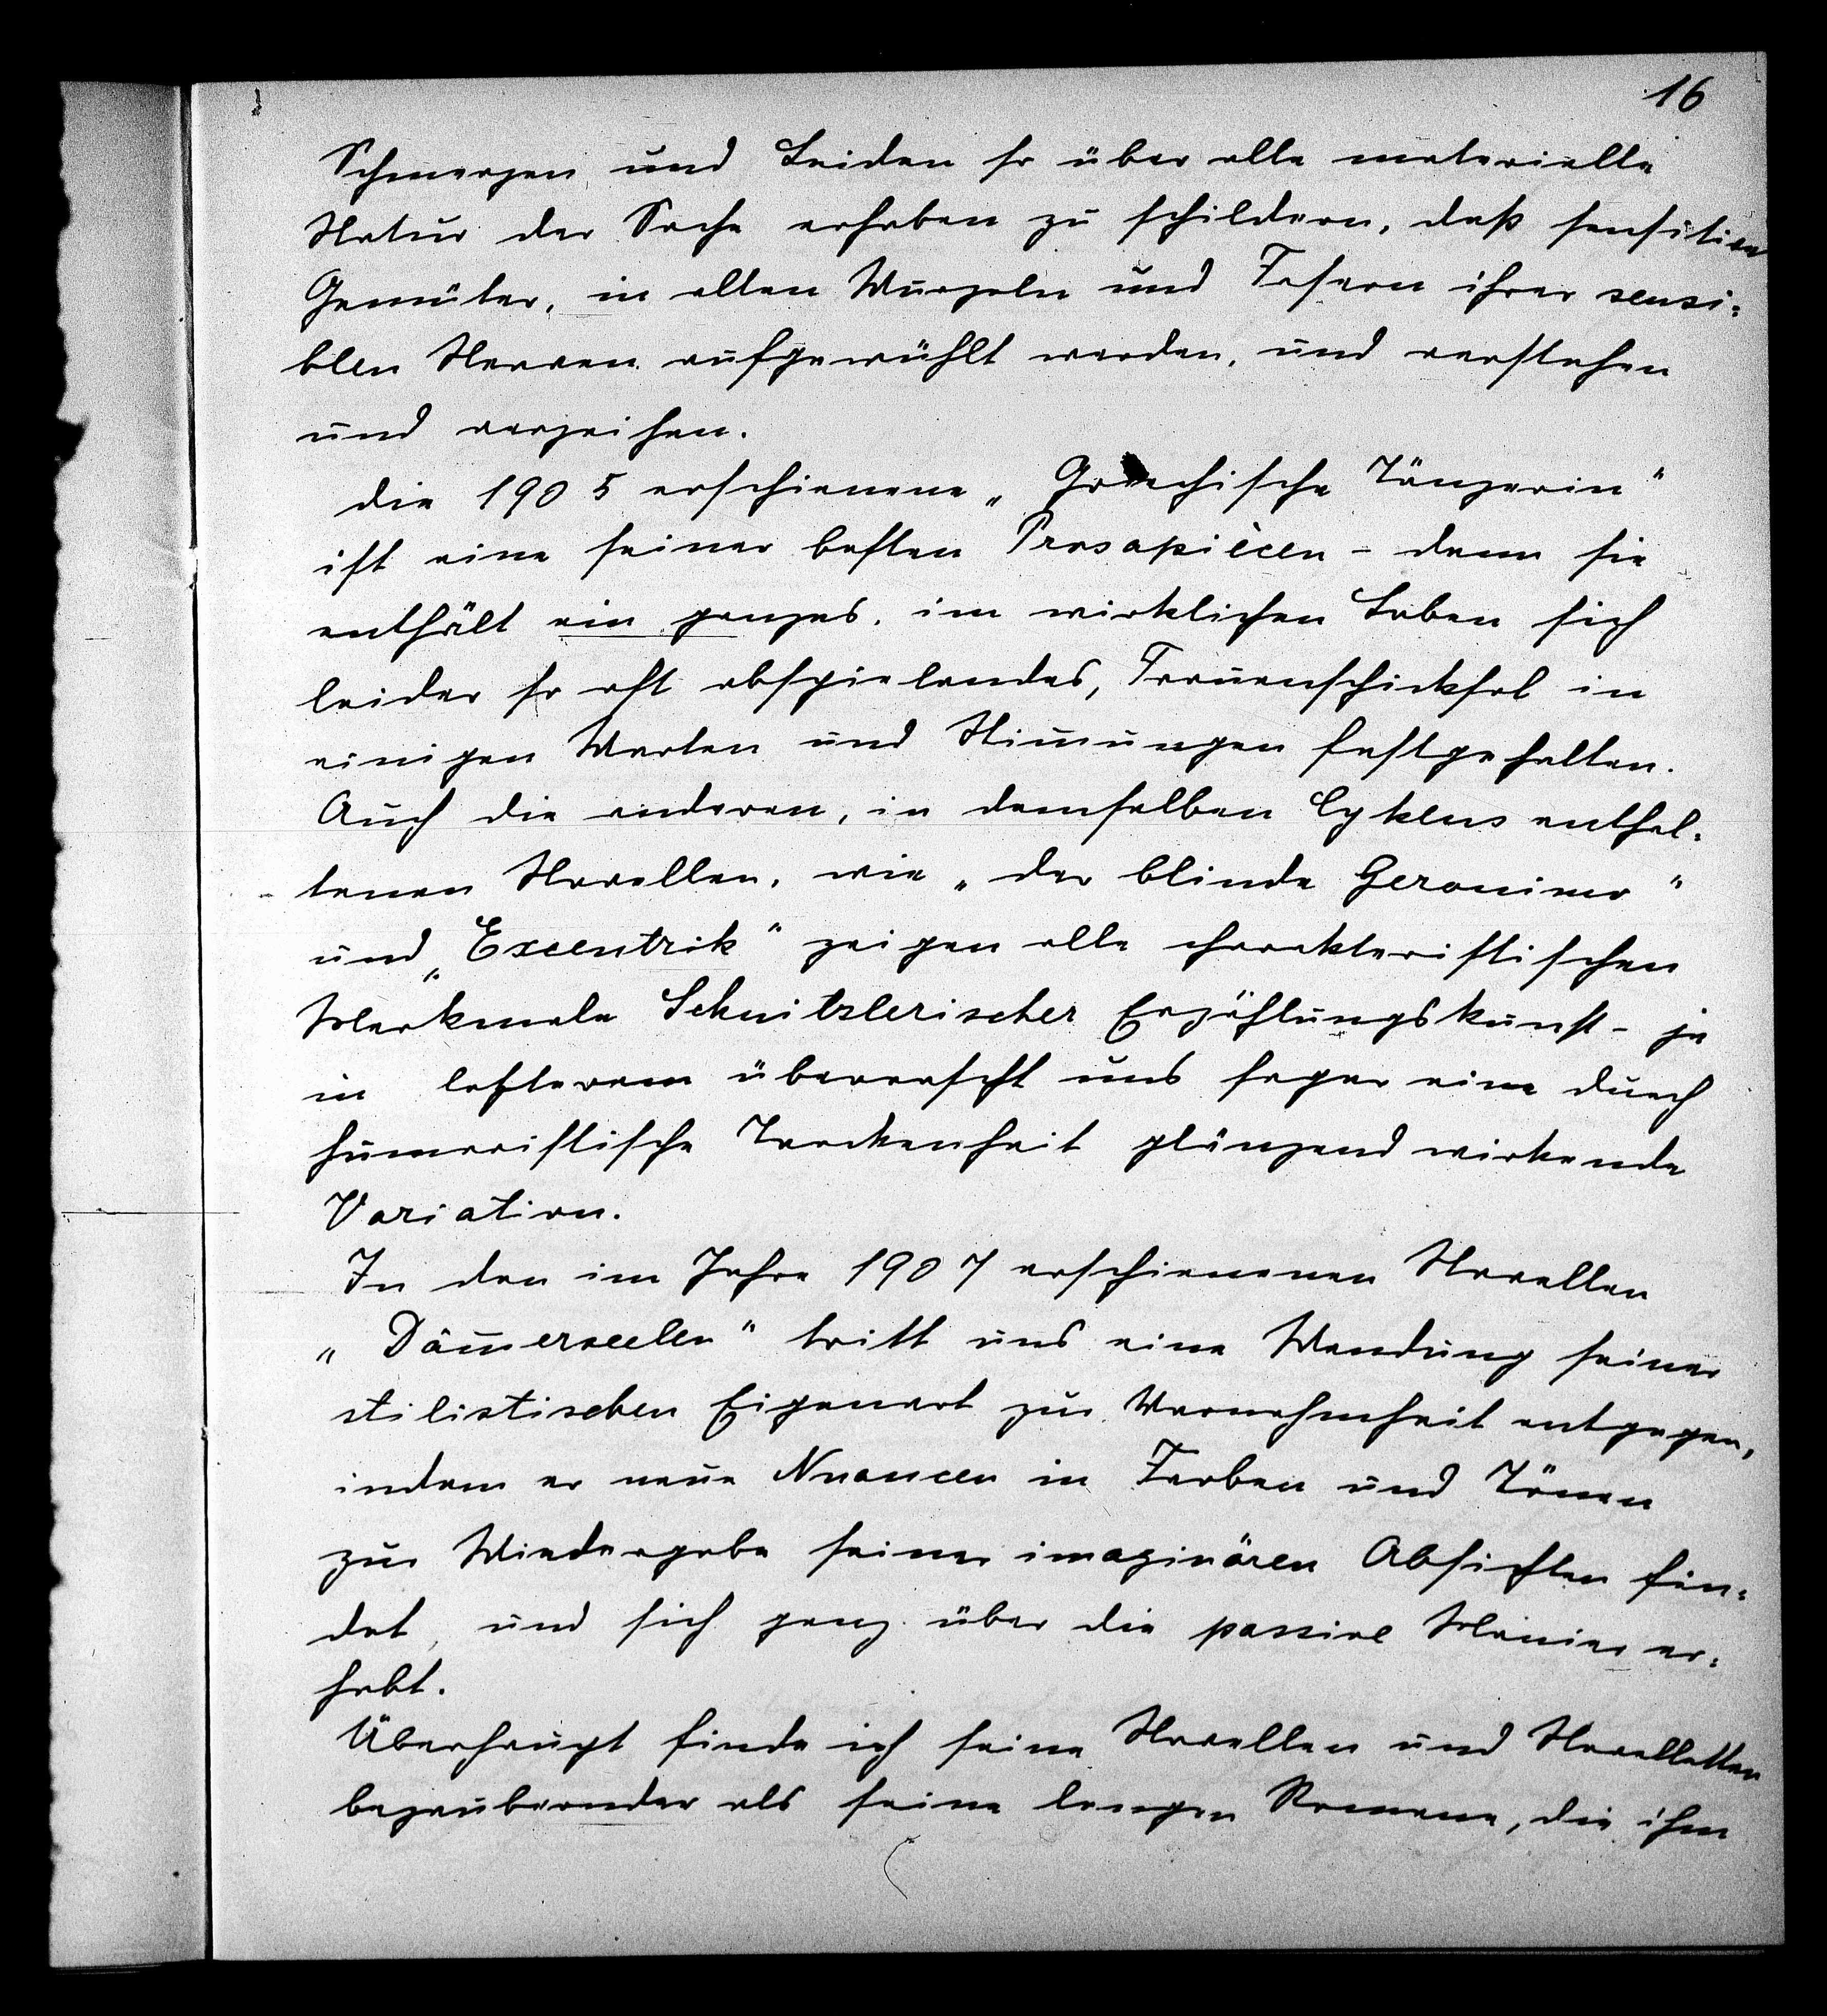 16
Schmerzen und Leiden so über alle materielle
Natur der Sache erhaben zu schildern, daß sensitive
Gemüter, in allen Wurzeln und Fasern ihrer sensi=
blen Nerven aufgewühlt werden, und verstehen
und verzeihen.
Die 1905 erschienene „Griechische Tänzerin"
ist eine seiner besten Prosapiècen – denn sie
enthält ein ganzes, im wirklichen Leben sich
leider so oft abspielendes, Frauenschicksal in
einigen Worten und Stim̅ungen festgehalten.
Auch die anderen, in demselben Cyklus enthal=
tenen Novellen, wie „der blinde Geronimo"
und „Excentrik" zeigen alle charakteristischen
Merkmale Schnitzlerischer Erzählungskunst – ja
in letzterem überrascht uns sogar eine durch
humoristische Trockenheit glänzend wirkende
Variation.
In den im Jahre 1907 erschienenen Novellen
„Däm̅erseelen" tritt uns eine Wendung seiner
stilistischen Eigenart zur Vornehmheit entgegen,
indem er neue Nuancen in Farben und Tönen
zur Wiedergabe seiner imaginären Absichten fin=
det, und sich ganz über die passive Manier er=
hebt.
Überhaupt finde ich seine Novellen und Novelletten
bezaubernder als seine langen Romane, die ihm